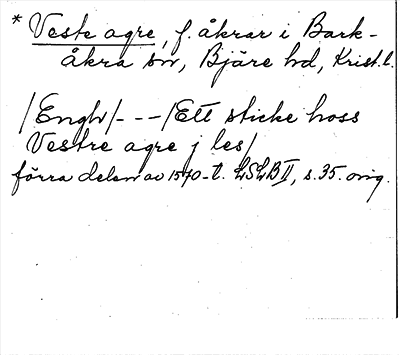 * Veste agre, f. åkrar i Bark-
åkra sn, Bjäre hd, Krist. l.
/Englr/ - - - /Ett sticke hoss
Vestre agre j les/
förra delen av 1540-t. LSLB II, s. 35. orig.